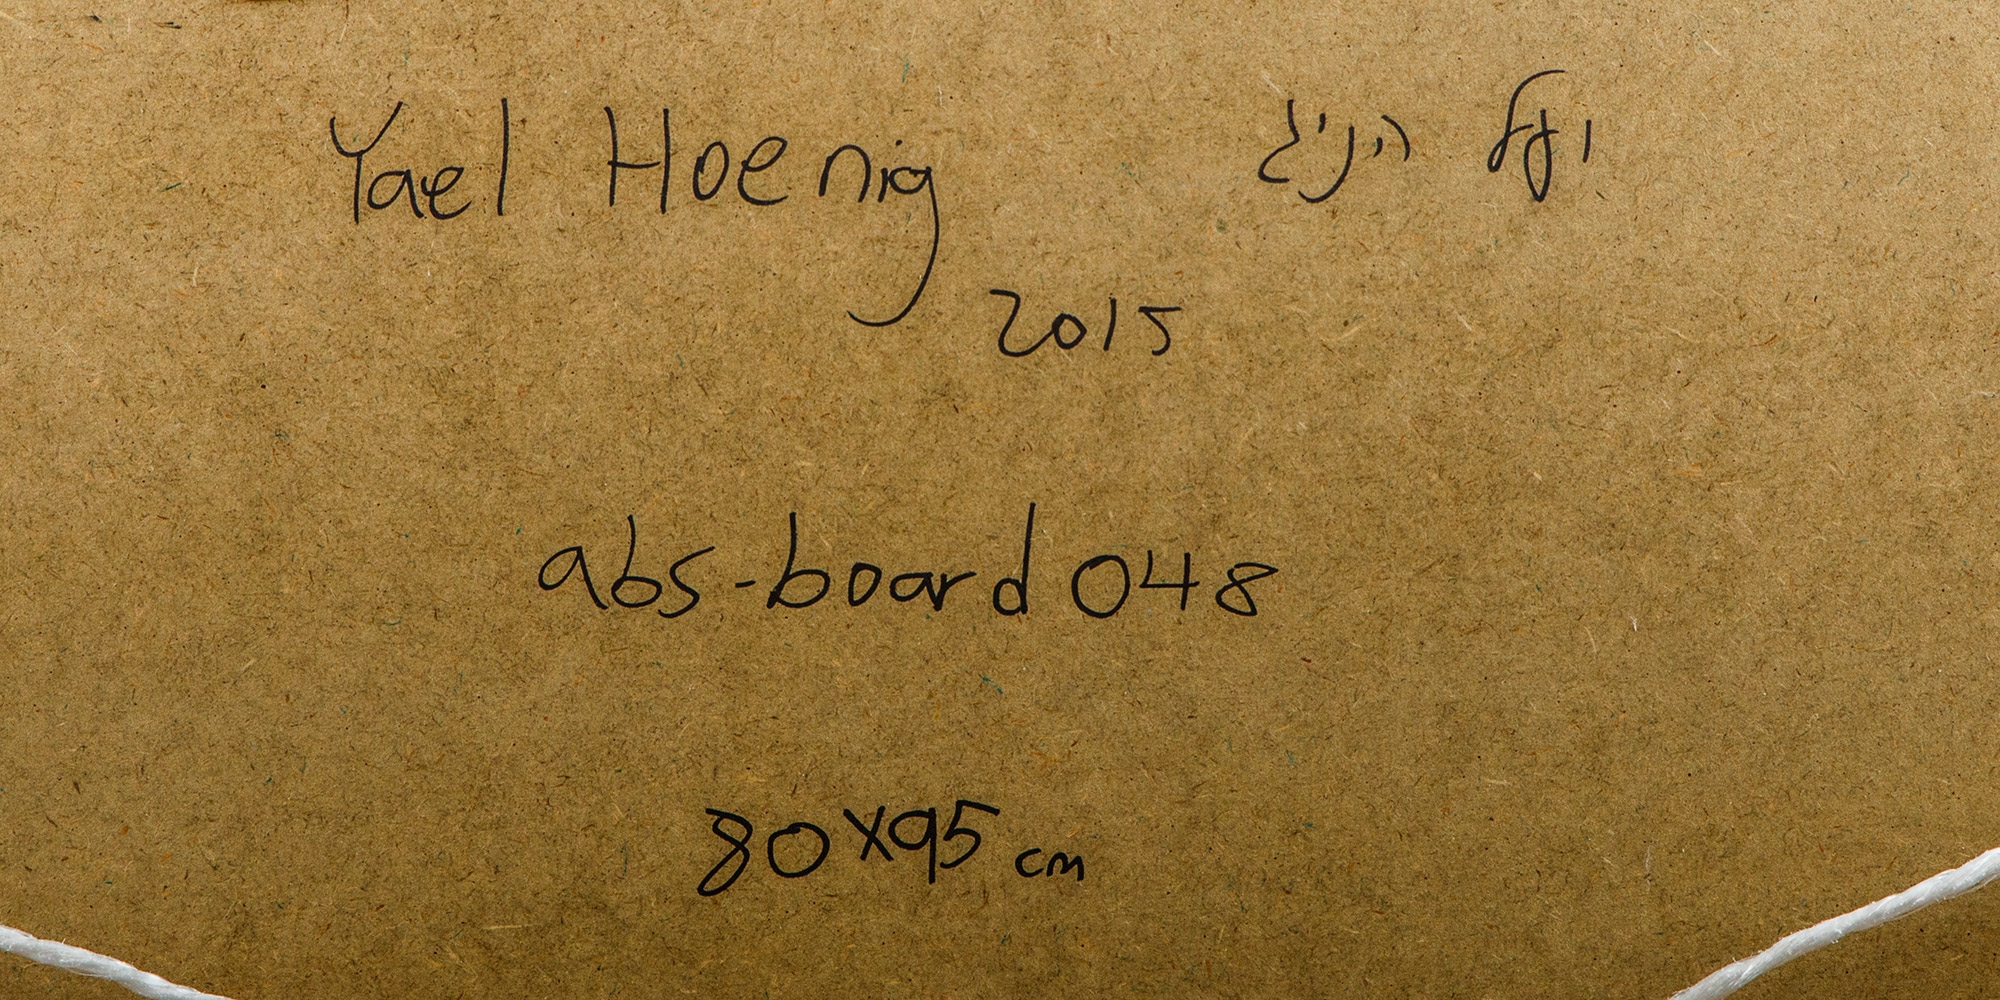 Yael Hoenig יעל הניג
2015
abs-board 048
80X95 cm